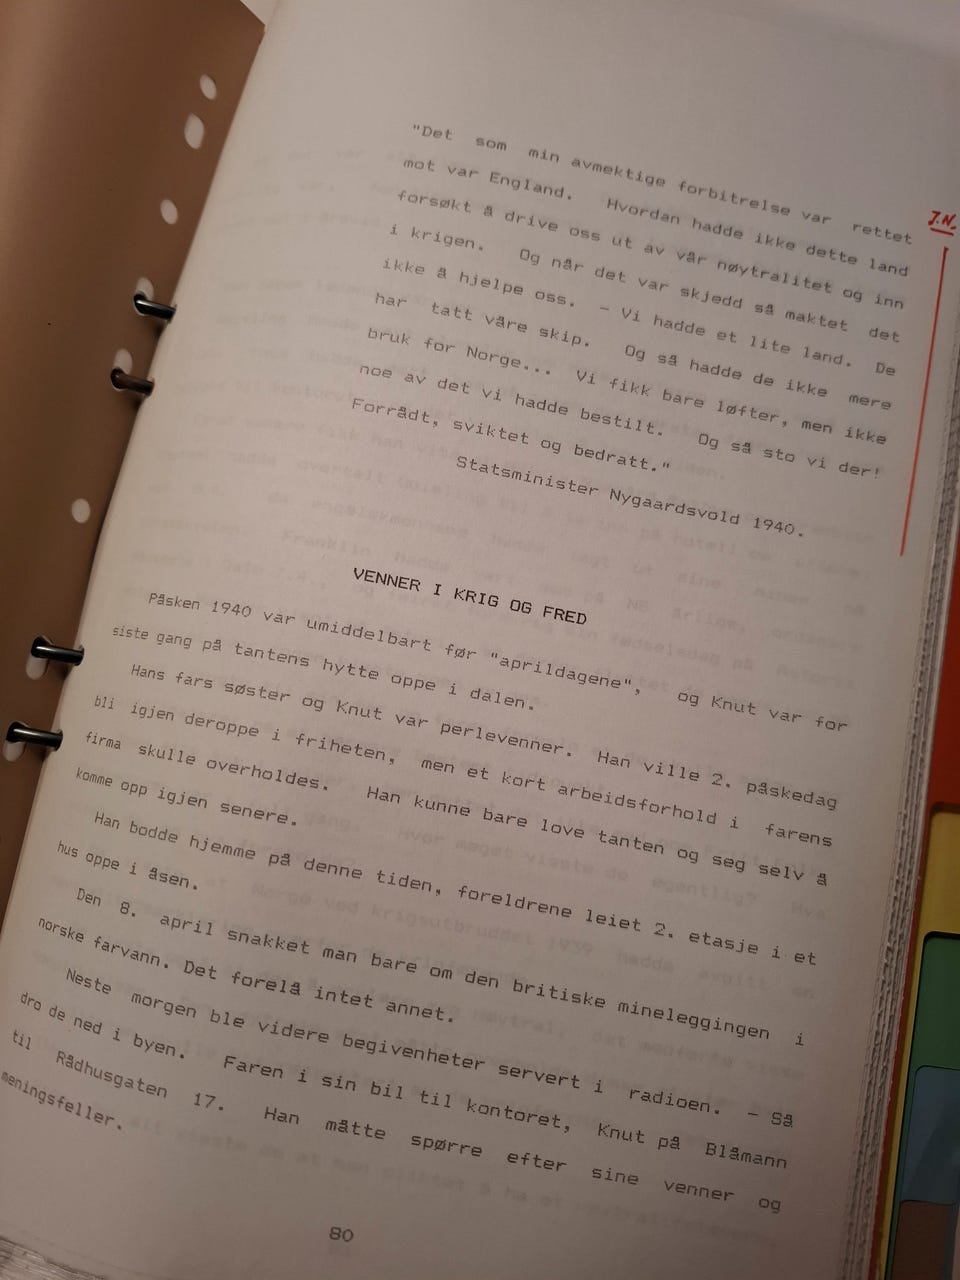 "Det som min avmektige forbitrelse var rettet
J.N.
mot var England. Hvordan hadde ikke dette land
forsøkt å drive oss ut av vår nøytralitet og inn
i krigen. Og når det var skjedd så maktet det
ikke å hjelpe oss. - Vi hadde et lite land. De
har tatt våre skip. Og så hadde de ikke mere
bruk for Norge... Vi fikk bare løfter, men ikke
noe av det vi hadde bestilt. Og så sto vi der!
Forrådt, sviktet og bedratt."
Statsminister Nygaardsvold 1940.
VENNER I KRIG OG FRED
Påsken 1940 var umiddelbart før "aprildagene", og Knut var for
siste gang på tantens hytte oppe i dalen.
Hans fars søster og Knut var perlevenner. Han ville 2. påskedag
bli igjen deroppe i friheten, men et kort arbeidsforhold i farens
firma skulle overholdes. Han kunne bare love tanten og seg selv å
komme opp igjen senere.
Han bodde hjemme på denne tiden, foreldrene leiet 2. etasje i et
hus oppe i åsen.
Den 8. april snakket man bare om den britiske mineleggingen i
norske farvann. Det forelå intet annet.
Neste morgen ble videre begivenheter servert i radioen. - Så
dro de ned i byen. Faren i sin bil til kontoret, Knut på Blåmann
til Rådhusgaten 17. Han måtte spørre efter sine venner og
meningsfeller.
80